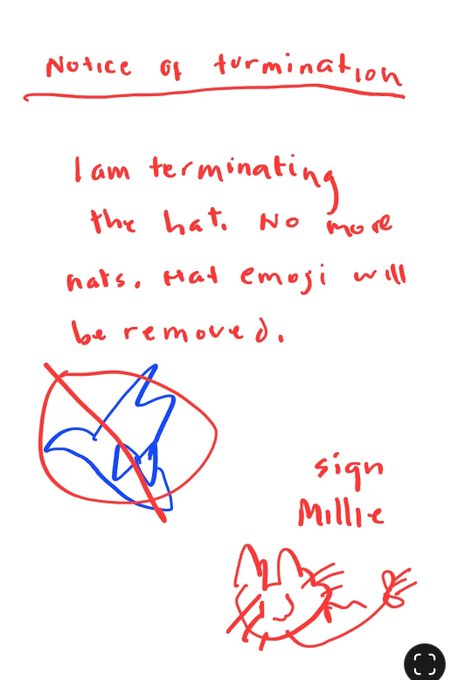 Notice of turmination
I am terminating
the hat. No more
hats. Hat emoji will
be removed.
sign
Millie